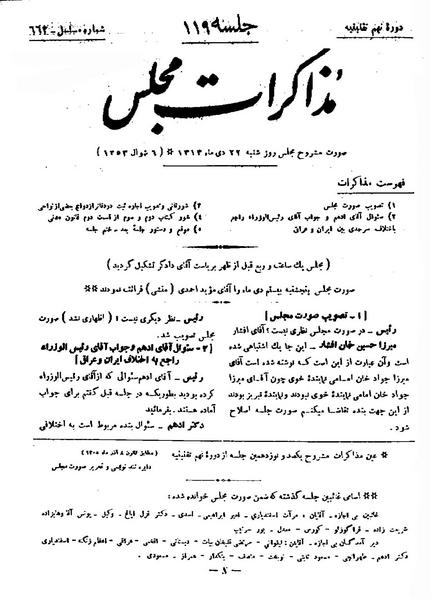 دورهٔ نهم تقنینیه
جلسه ۱۱۹
شماره مسلسل ۶۶۲
مذاکرات مجلس
صورت مشروح مجلس روز شنبه ۲۲ دی ماه ۱۳۱۳ * (۶ شوال ۱۳۵۳)
فهرست مذاکرات
۱) تصویب صورت مجلس
۲) سئوال آقای ادهم و جواب آقای رئیس‌الوزراء راجع
باختلاف سرحدی بین ایران و عراق
۳) شور ثانی و تصویب اجازه ثبت دو دفاتر ازدواج بعضی از نواحی
۴) شور کتاب دوم و سوم از قسمت دوم قانون مدنی
۵) موقع و دستور جلسهٔ بعد - ختم جلسه
(مجلس یک ساعت و ربع قبل از ظهر بریاست آقای دادگر تشکیل گردید)
صورت مجلس پنجشنبه بیستم دی ماه را آقای مؤید احمدی (منشی) قرائت نمودند **
[۱ - تصویب صورت مجلس]
رئیس - در صورت مجلس نظری نیست؟ آقای افشار
میرزا حسین خان افشار - این جا یک اشتباهی شده
است و آن عبارت از این است که نوشته شده است آقای
میرزا جواد خان امامی نمایندهٔ خوی چون آقای میرزا
جواد خان امامی نمایندهٔ خوی نبودند و نمایندهٔ تبریز بودند
از این جهت بنده تقاضا میکنم صورت جلسه اصلاح
شود.
رئیس - نظر دیگری نیست؟ (اظهاری نشد) صورت
مجلس تصویب شد.
[۲ - سئوال آقای ادهم و جواب آقای رئیس الوزراء
راجع به اختلاف ایران و عراق]
رئیس - آقای ادهم سئوالی که از آقای رئیس‌الوزراء
کرده بودید بطوریکه در جلسه قبل گفتم برای جواب
آماده هستند. بفرمائید
دکتر ادهم - سئوال بنده مربوط است به اختلافی
* عین مذاکرات مشروح یکصد و نوزدهمین جلسه از دورهٔ نهم تقنینیه
(مطابق قانون ۸ آذر ماه ۱۳۰۵)
دایره تند نویسی و تحریر صورت مجلس
** اسامی غائبین جلسه گذشته که ضمن صورت مجلس خوانده شده:
غائبین بی اجازه - آقایان: مرآت اسفندیاری - امیر ابراهیمی - اسدی - دکتر قزل ایاغ - وکیل - یونس آقا وهابزاده
شریعت زاده - قراگوزلو - کورس - معدل - بور سرتیپ
دیر آمدگان بی اجازه - آقایان: لیقوانی - مرتضی قلیخان بیات - دبستانی - افخمی - عراقی - اعظم زنگنه - اسفندیاری
دکتر ادهم - طهرانچی - مسعود ثابتی - نوبخت - منصف - یتکدار - همراز - مسعودی
- ۸ -